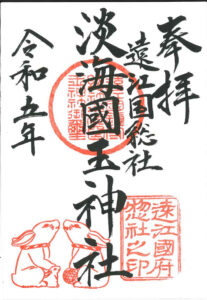 奉拝
遠江国総社
淡海國玉神社
令和五年
遠江國府
惣社之印